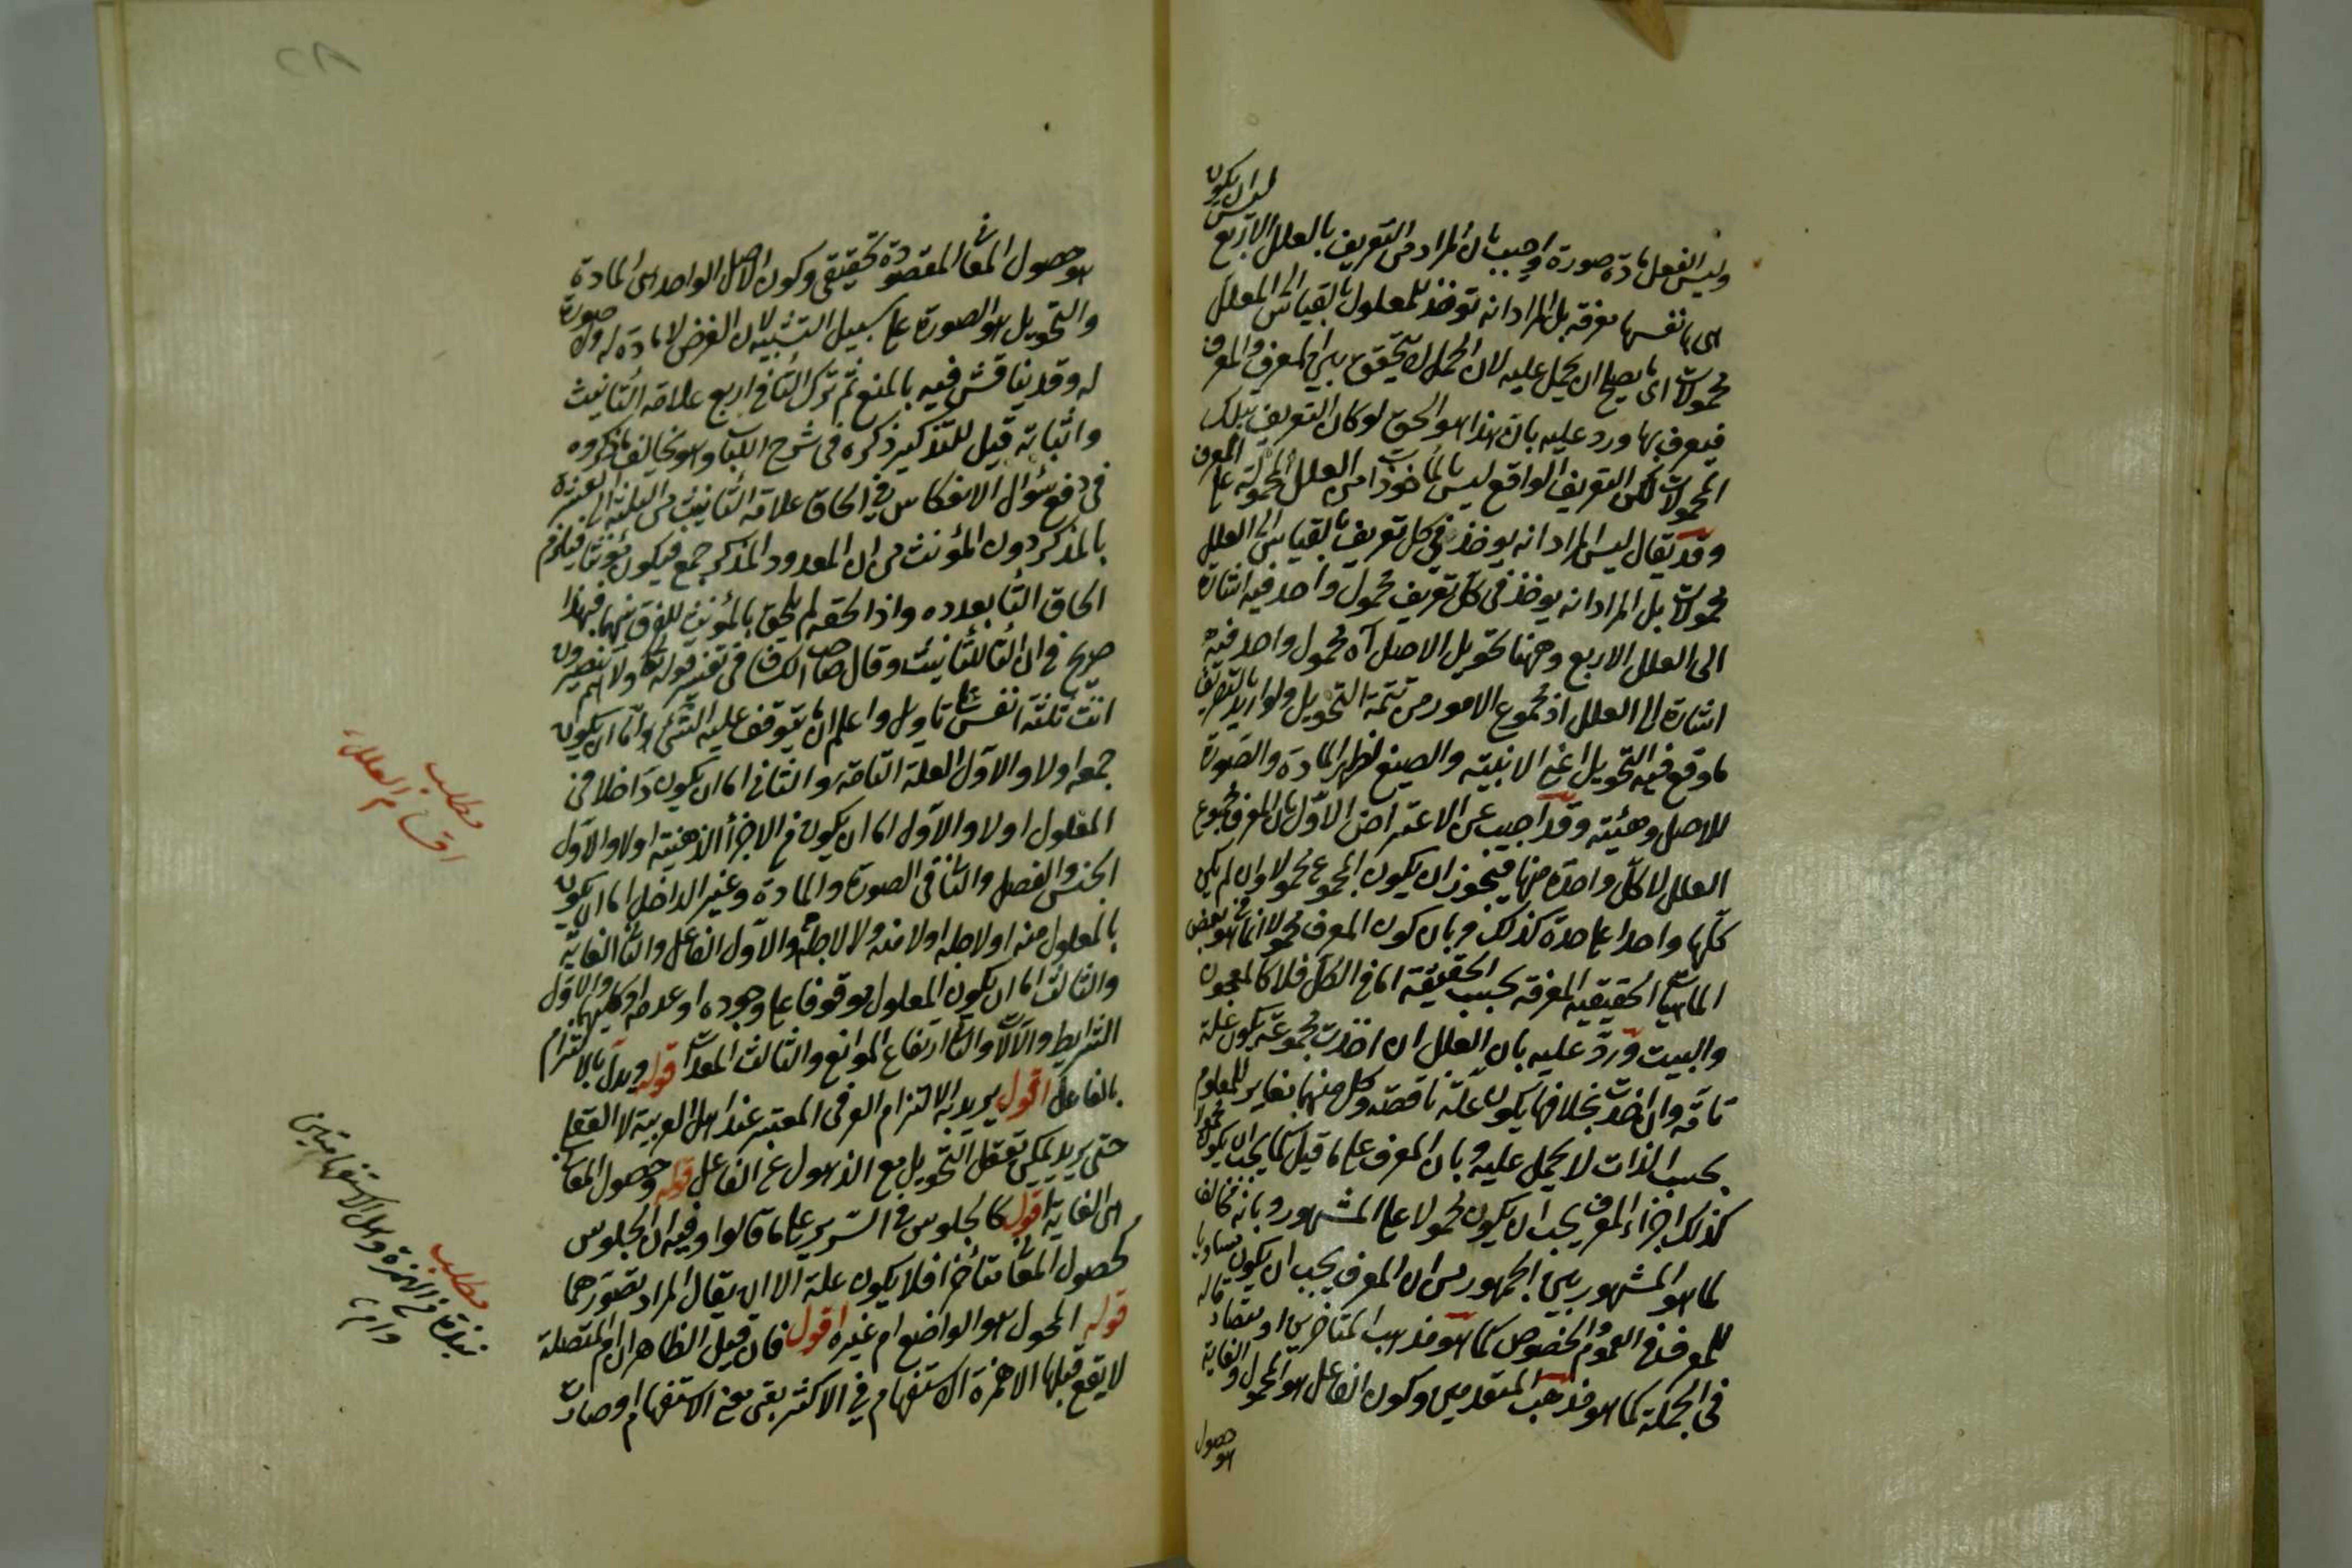 ليس ان يكون
وليس الفعل مادة صورة واجيب بان المراد من التعريف بالعلل الاربع
ليس انها نفسها معرفة بل المراد انه تؤخذ للمعلول بالقياس الى العلل
محمولات اى ما يصح ان يحمل عليه لان الحمل لم يتحقق بين المعرف والمعرف
فيعرف بها ورد عليه بان هذا هو الحق لو كان التعريف بتلك
المحمولات لكن التعريف الواقع ليس بالمأخوذات من العلل المحمولة على المعرف
وقد يقال ليس المراد انه يوخذ فى كل تعريف بالقياس الى العلل
محمولات بل المراد انه يوخذ فى كل تعريف محمول واحد فيه اشارة
الى العلل الاربع وههنا تحويل الاصل آه محمول واحد فيه
اشارة الى العلل اذ مجموع الامور من تتمة التحويل ولو اريد بالتصريف
ما وقع فيه التحويل اعنى الابنية والصيغ لظهر المادة والصورة
للاصل وهيئته وقد اجيب عن الاعتراض الاول بان المعرف مجموع
العلل لا كل واحدة منها فيجوز ان يكون المجموع محمولا وان لم يكن
كلها واحدا على حدة كذلك وبان كون المعرف محمولا انما هو فى بعض
الماهيات الحقيقية المعرفة بحسب الحقيقة اما فى الكل فلا كالمعجون
والبيت ورد عليه بان العلل ان اخذت مجموعة يكون علة
تامة وان اخذت بخلافها يكون علة ناقصة وكل منهما مغاير للمعلوم
بحسب الذات لا يحمل عليه وبان المعرف على ما قيل كما يجب ان يكون محمولا
كذلك اجزاء المعرف يجب ان يكون محمولا على المشهور وبانه مخالف
لما هو المشهور بين الجمهور من ان المعرف يجب ان يكون مساويا
للمعرف فى العموم والخصوص كما هو مذهب المتأخرين او
فى الجملة كما هو مذهب المتقدمين وكون الفاعل هو المحول والغاية
هو حصول
هو حصول المعانى المقصودة تحقيقى وكون الاصل الواحد هى المادة
والتحويل هو الصورة على سبيل التشبيه لان الفرض لا مادة له ولا صورة
له وقد يناقش فيه بالمنع ثم ترك التا فى اربع علامة التأنيث
واثباته قيل للتذكير ذكره فى شرح اللباب وهو يخالف ما ذكروه
فى دفع سؤال الانعكاس فى الحاق علامة التأنيث من الثلثة الى العشرة
بالمذكر دون المؤنث من ان المعدود المذكر جمع فيكون مؤنثا فيلزم
الحاق التا بعدده واذا لحقه لم يلحق بالمؤنث للفرق بينهما فهذا
صريح فى ان التا للتأنيث وقال صاحب الكشاف فى تفسير قوله تعالى ولا هم ينصرون
انث ثلثة انفس على تأويل واعلم ان ما يتوقف عليه الشئ اما ان يكون
جمعه اولا والاول العلة التامة والثانى اما ان يكون داخلا فى
المعلول اولا والاول اما ان يكون فى الاجزأ الذهنية اولا والاول
الجنس والفصل والثانى الصورة والمادة وغير الداخل اما ان يكون
بالمعلول منه او لاجله او لا منه ولا لاجله والاول الفاعل والثانى الغاية
والثالث اما ان يكون المعلول موقوفا على وجوده او عدمه او كليهما والاول
الشرايط والآلات والثانى ارتفاع الموانع والثالث المعدات قوله ويدل بالالتزام
بالفاعل اقول يريد به الالتزام العرفى المعتبر عند اهل العربية لا العقلى
حتى يريد يمكن تعقل التحويل مع الذهول عن الفاعل قوله وحصول المعانى
هى الغاية اقول كالجلوس فى السرير على ما قالوا وفيه ان الجلوس
كحصول المعانى متأخرا فلا يكون علة الا ان يقال المراد تصورهما
قوله المحول هو الواضع ام غيره اقول فان قيل الظاهر ان ام المتصلة
لا يقع قبلها الا همزة الاستفهام فى الاكثر بقى معنى الاستفهام او صارت
مطلب
اقسام العلل
مطلب
نبذة فى الهمزة وهل الاستفهاميتين
وام